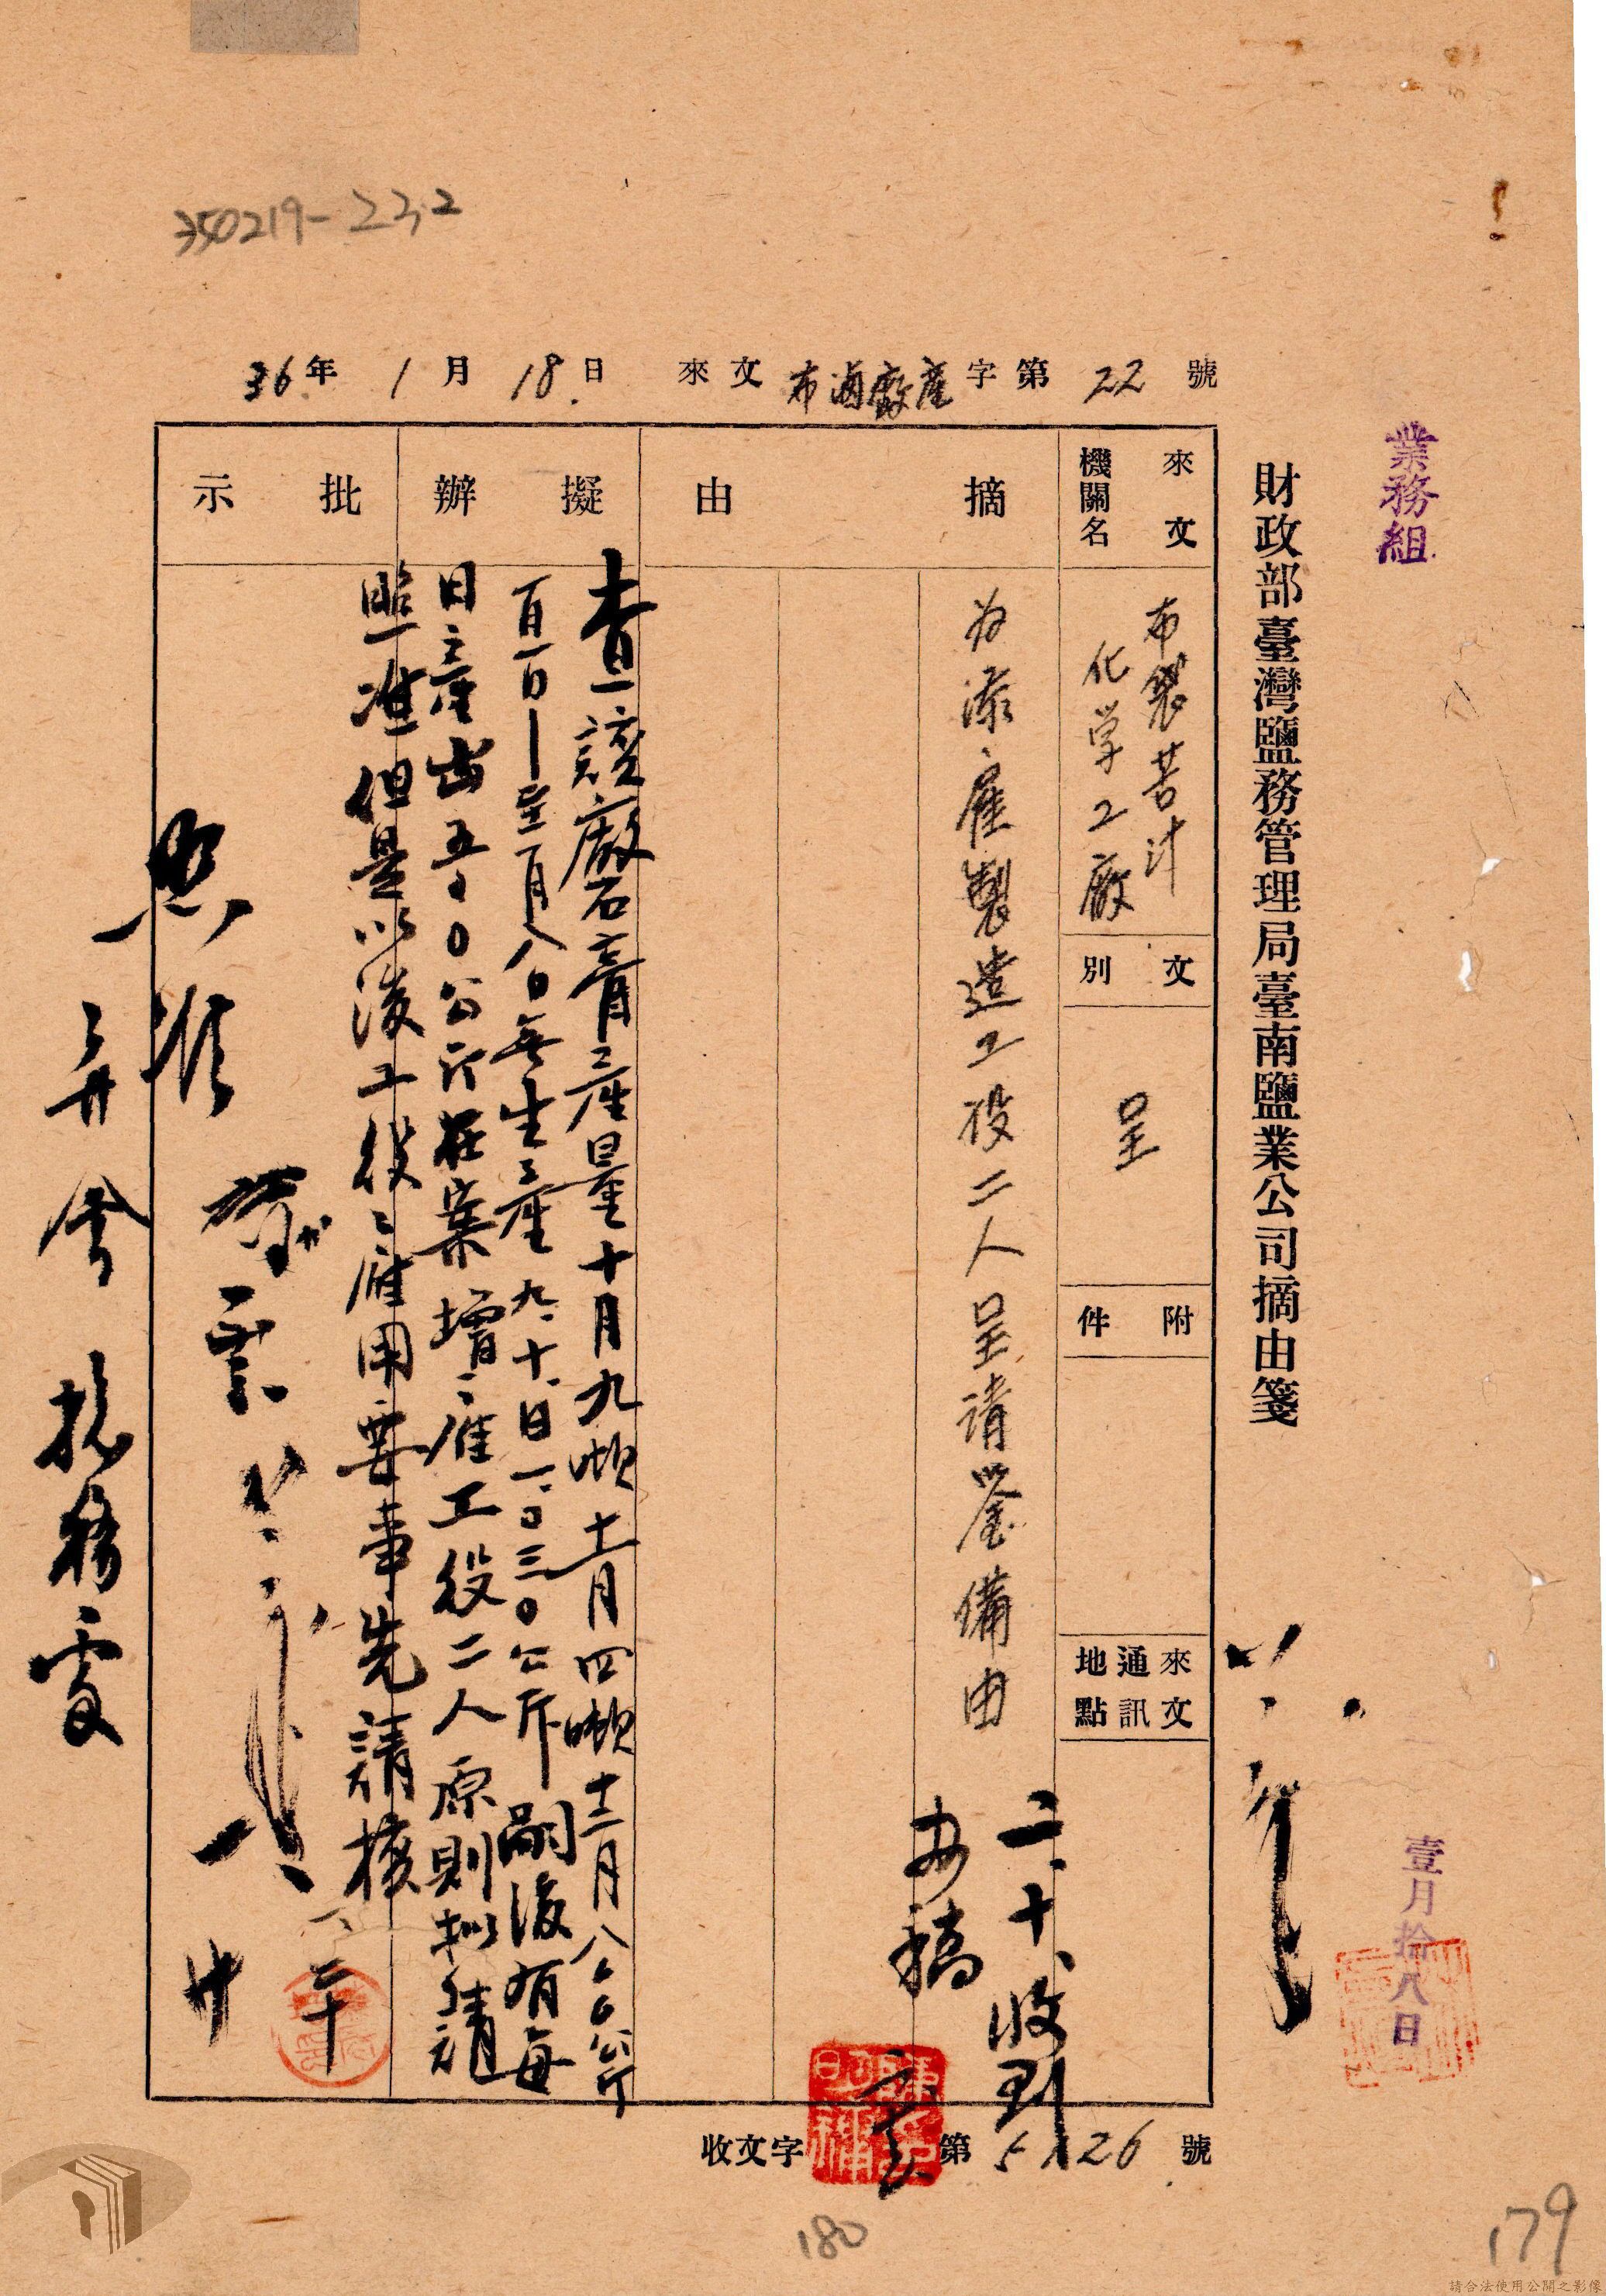 350219-23.2
36年1月18日 來文 布滷廠產字第22號
業務組
財政部臺灣鹽務管理局臺南鹽業公司摘由箋
來文機關名
布袋苦汁
化学工廠
文別
呈
附件
來文通訊地點
摘由
為添雇製造工役二人呈請鑒備由
二、十、收到
擬辦
查該廠石膏產量十月九噸十一月四噸十二月八〇〇公斤
一月一日至一月八日無生產九、十、日一、〇三〇公斤嗣後有每
日產出五〇〇公斤在案增雇工役二人原則擬請
照准但是以後工役之雇用要事先請核
一、二十
批示
照准
弄會
總務處
一
廿
壹月拾八日
收文字第5126號
180
179
請合法使用公開之影像